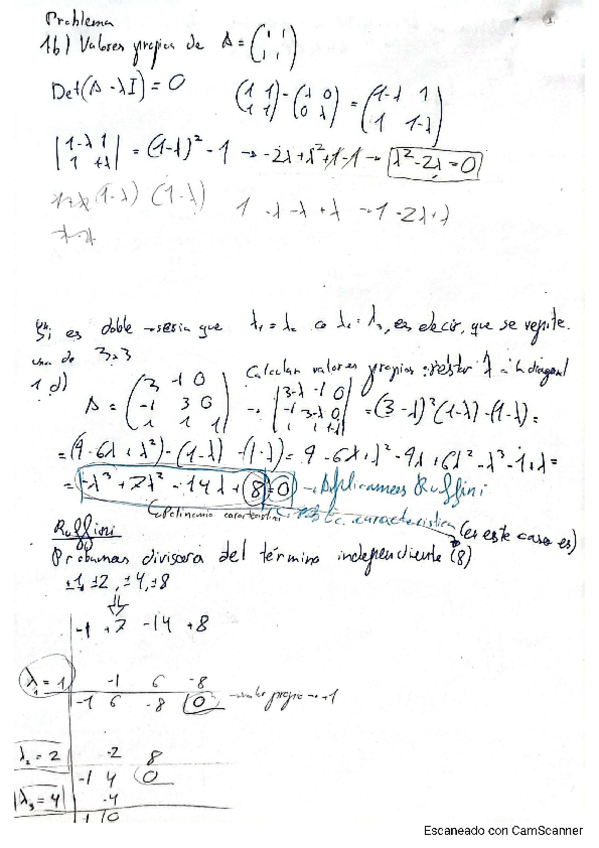 Problema
1b) Valores propios de A = (1 1
1 1)
Det(A - λI) = 0 (1 1 - (λ 0 = (1-λ 1
1 1) 0 λ) 1 1-λ)
|1-λ 1
1 1-λ| = (1-λ)² - 1 → -2λ + λ² + 1 - 1 → λ² - 2λ = 0
(1-λ) (1-λ) 1 -λ -λ + λ → 1 - 2λ + λ
Si es doble → seria que λ₁ = λ₂ o λ₂ = λ₃, es decir, que se repite.
uno de 3x3
1d) Calcular valores propios: restar λ a la diagonal
A = (3 -1 0
-1 3 0
1 1 1) → |3-λ -1 0
-1 3-λ 0
1 1 1-λ| = (3-λ)²(1-λ) - (1-λ) =
= (9 - 6λ + λ²) · (1-λ) - (1-λ) = 9 - 6λ + λ² - 9λ + 6λ² - λ³ - 1 + λ =
= -λ³ + 7λ² - 14λ + 8 = 0 → Aplicamos Ruffini
Polinomio característico característica (en este caso es)
Ruffini
Probamos divisora del término independiente (8)
±1, ±2, ±4, ±8
-1 +7 -14 +8
λ₁ = 1 -1 6 -8
-1 6 -8 0 → valor propio → +1
λ₂ = 2 -2 8
-1 4 0
λ₃ = 4 -4
-1 0
Escaneado con CamScanner